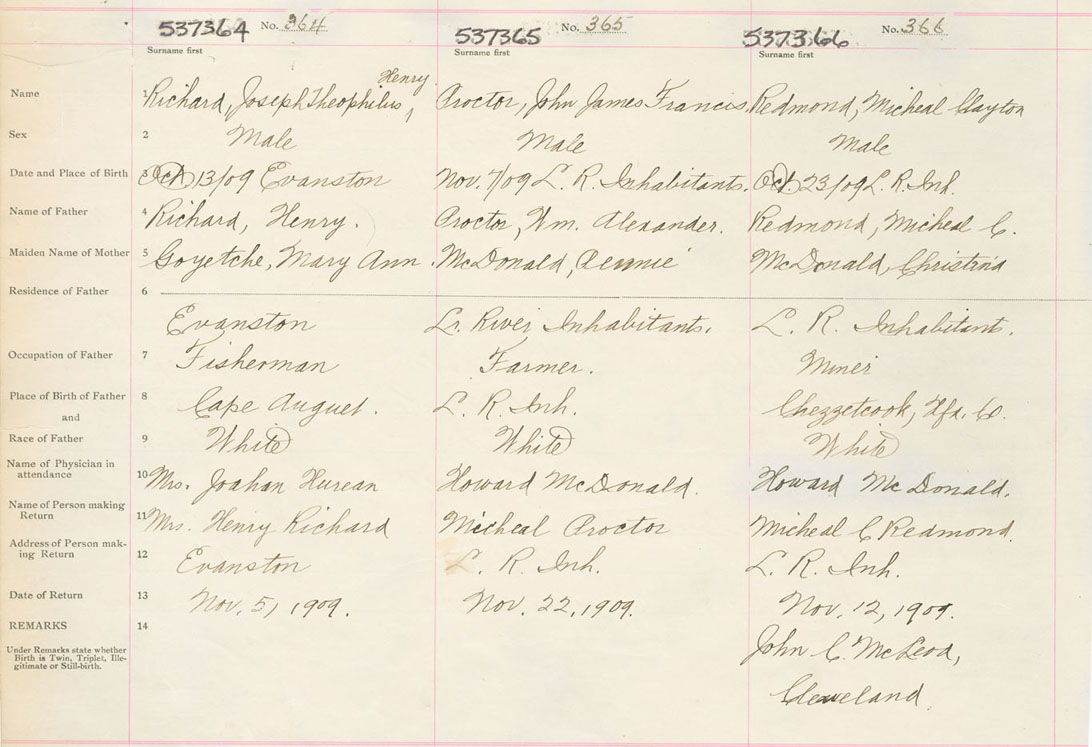 537364 No. 364
537365 No. 365
537366 No. 366
Surname first Surname first Surname first
Henry
Name 1 Richard, Joseph Theophilus, Proctor, John James Francis. Redmond, Micheal Clayton
Sex 2 Male Male Male
Date and Place of Birth 3 Oct 13/09 Evanston Nov. 7/09 L. R. Inhabitants. Oct. 23/09 L. R. Inh.
Name of Father 4 Richard, Henry. Proctor, Wm. Alexander. Redmond, Micheal C.
Maiden Name of Mother 5 Goyetche, Mary Ann. McDonald, Pennie McDonald, Christina
Residence of Father 6
Evanston Lr. River Inhabitants. L. R. Inhabitants.
Occupation of Father 7 Fisherman Farmer. Miner
Place of Birth of Father 8 Cape Auguet. L. R. Inh. Chezzetcook, Hfx. Co.
and
Race of Father 9 White White White
Name of Physician in
attendance 10 Mrs. Joahan Hurean Howard McDonald. Howard McDonald.
Name of Person making
Return 11 Mrs. Henry Richard Micheal Proctor Micheal C Redmond.
Address of Person mak-
ing Return 12 Evanston L. R. Inh. L. R. Inh.
Date of Return 13 Nov. 5, 1909. Nov. 22, 1909. Nov. 12, 1909.
REMARKS 14
Under Remarks state whether
Birth is Twin, Triplet, Ille-
gitimate or Still-birth.
John C. McLeod,
Cleveland.